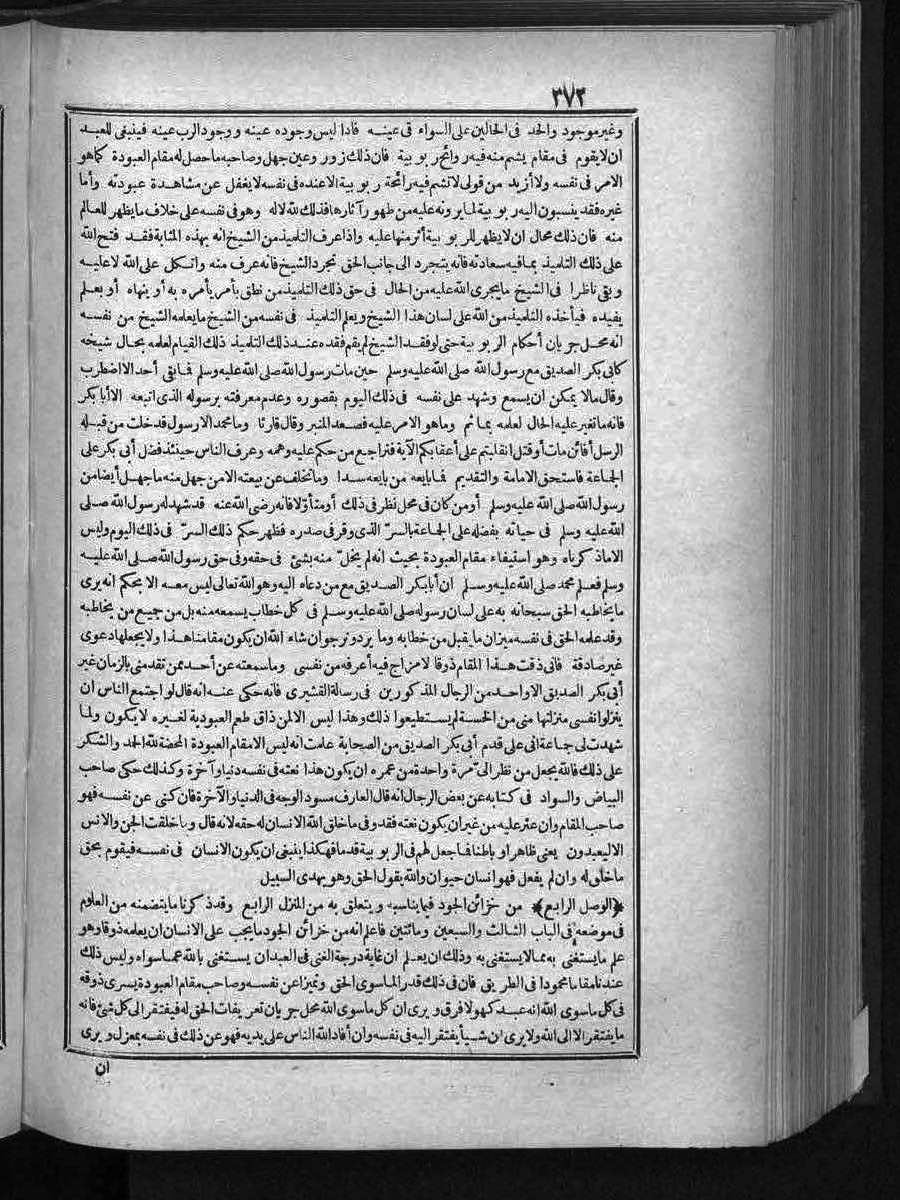 ٣٧٢
وغير موجود والحد فى الحالين على السواء فى عينه فاذا ليس وجوده عينه ووجود الرب عينه فينبغى للعبد
ان لا يقوم فى مقام يشم منه فيه روائح ربوبية فان ذلك زور وعين جهل وصاحبه ما حصل له مقام العبودة كما هو
الامر فى نفسه ولا أزيد من قولى لا تشم فيه رائحة ربوبية الا عنده فى نفسه لا يغفل عن مشاهدة عبودته وأما
غيره فقد ينسبون اليه ربوبية لما يرونه عليه من ظهور آثارها فذلك لله لا له وهو فى نفسه على خلاف ما يظهر للعالم
منه فان ذلك محال ان لا يظهر للربوبية أثر منها عليه واذا عرف التلميذ من الشيخ انه بهذه المثابة فقد فتح الله
على ذلك التلميذ بما فيه سعادته فانه يتجرد الى جانب الحق تجرد الشيخ فانه عرف منه واتكل على الله لا عليه
وبقى ناظرا فى الشيخ ما يجرى الله عليه من الحال فى حق ذلك التلميذ من نطق بأمر يأمره به أو ينهاه أو بعلم
يفيده فيأخذه التلميذ من الله على لسان هذا الشيخ ويعلم التلميذ فى نفسه من الشيخ ما يعلمه الشيخ من نفسه
انه محل جريان أحكام الربوبية حتى لو فقد الشيخ لم يقم فقده عند ذلك التلميذ ذلك القيام لعلمه بحال شيخه
كأبى بكر الصديق مع رسول الله صلى الله عليه وسلم حين مات رسول الله صلى الله عليه وسلم فما بقى أحد الا اضطرب
وقال ما لا يمكن ان يسمع وشهد على نفسه فى ذلك اليوم بقصوره وعدم معرفته برسوله الذى اتبعه الا أبا بكر
فانه ما تغير عليه الحال لعلمه بما ثم وما هو الامر عليه فصعد المنبر وقال قارئا وما محمد الا رسول قد خلت من قبله
الرسل أفائن مات أو قتل انقلبتم على أعقابكم الآية فتراجع من حكم عليه وهمه وعرف الناس حينئذ فضل أبى بكر على
الجماعة فاستحق الامامة والتقديم فما بايعه من بايعه سدا وما تخلف عن بيعته الا من جهل منه ما جهل أيضا من
رسول الله صلى الله عليه وسلم أو من كان فى محل نظر فى ذلك أو متأوّلا فانه رضى الله عنه قد شهد له رسول الله صلى
الله عليه وسلم فى حياته بفضله على الجماعة بالسرّ الذى وقر فى صدره فظهر حكم ذلك السرّ فى ذلك اليوم وليس
الا ما ذكرناه وهو استيفاء مقام العبودة بحيث انه لم يخلّ منه بشئ فى حقه وفى حق رسول الله صلى الله عليه
وسلم فعلم محمد صلى الله عليه وسلم ان أبا بكر الصديق مع من دعاه اليه وهو الله تعالى ليس معه الا بحكم انه يرى
ما يخاطبه الحق سبحانه به على لسان رسوله صلى الله عليه وسلم فى كل خطاب يسمعه منه بل من جميع من يخاطبه
وقد علمه الحق فى نفسه ميزان ما يقبل من خطابه وما يرد ونرجو ان شاء الله ان يكون مقامنا هذا ولا يجعلها دعوى
غير صادقة فانى ذقت هذا المقام ذوقا لا مزاج فيه أعرفه من نفسى وما سمعته عن أحد ممن تقدمنى بالزمان غير
أبى بكر الصديق الا واحد من الرجال المذكورين فى رسالة القشيرى فانه حكى عنه انه قال لو اجتمع الناس ان
ينزلوا نفسى منزلتها منى من الخسة لم يستطيعوا ذلك وهذا ليس الا لمن ذاق طعم العبودية لغيره لا يكون ولما
شهدت لى جماعة انى على قدم أبى بكر الصديق من الصحابة علمت انه ليس الا مقام العبودة المحضة لله الحمد والشكر
على ذلك فالله يجعل من نظر الىّ مرة واحدة من عمره ان يكون هذا نعته فى نفسه دنيا وآخرة وكذلك حكى صاحب
البياض والسواد فى كتابه عن بعض الرجال انه قال العارف مسود الوجه فى الدنيا والآخرة فان كنى عن نفسه فهو
صاحب المقام وان عثر عليه من غير ان يكون نعته فقد وفى ما خلق الله الانسان له حقه لانه قال وما خلقت الجن والانس
الا ليعبدون يعنى ظاهرا وباطنا فما جعل لهم فى الربوبية قدما فهكذا ينبغى ان يكون الانسان فى نفسه فيقوم بحق
ما خلق له وان لم يفعل فهو انسان حيوان والله يقول الحق وهو يهدى السبيل
﴿الوصل الرابع﴾ من خزائن الجود فيما يناسبه ويتعلق به من المنزل الرابع وقد ذكرنا ما يتضمنه من العلوم
فى موضعه فى الباب الثالث والسبعين ومائتين فاعلم انه من خزائن الجود ما يجب على الانسان ان يعلمه ذوقا وهو
علم ما يستغنى به مما لا يستغنى به وذلك ان يعلم ان غاية درجة الغنى فى العبد ان يستغنى بالله عما سواه وليس ذلك
عندنا مقاما محمودا فى الطريق فان فى ذلك قدر الما سوى الحق وتميزا عن نفسه وصاحب مقام العبودة يسرى ذوقه
فى كل ما سوى الله انه عبد كهو لا فرق ويرى ان كل ما سوى الله محل جريان تعريفات الحق له فيفتقر الى كل شئ فانه
ما يفتقر الا الى الله ولا يرى ان شيأ يفتقر اليه فى نفسه وان أفاد الله الناس على يديه فهو عن ذلك فى نفسه بمعزل ويرى
ان